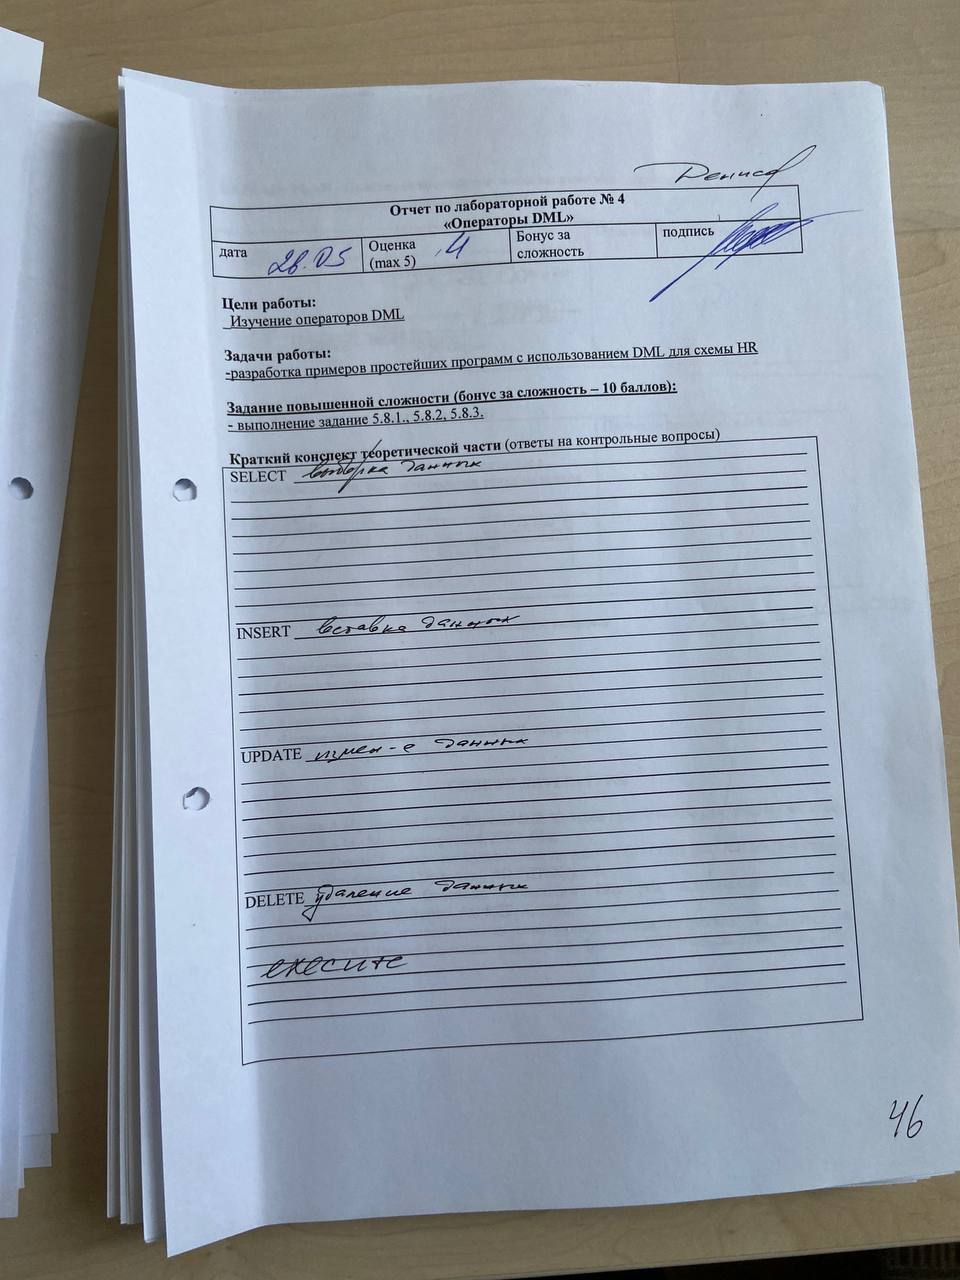 Денисов
Отчет по лабораторной работе № 4
«Операторы DML»
дата 28.05 Оценка (max 5) 4 Бонус за сложность подпись
Цели работы:
Изучение операторов DML
Задачи работы:
-разработка примеров простейших программ с использованием DML для схемы HR
Задание повышенной сложности (бонус за сложность – 10 баллов):
- выполнение задание 5.8.1., 5.8.2, 5.8.3.
Краткий конспект теоретической части (ответы на контрольные вопросы)
SELECT выборка данных
INSERT вставка данных
UPDATE измен-е данных
DELETE удаление данных
execute
46